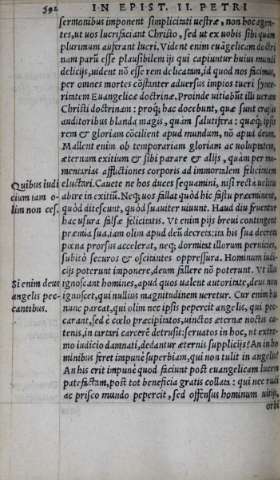 592 IN EPIST. II. PETRI
sermonibus imponent simplicitati uestræ, non hoc agen-
tes, ut uos lucrifaciant Christo, sed ut ex uobis sibi quàm
plurimum auferant lucri. Vident enim euãgelicam doctri
nam parũ esse plausibilem ijs qui capiuntur huius mundi
delicijs, uident nõ esse rem delicatam, id quod nos facimus,
per omnes mortes cõstanter aduersus impios tueri synce-
ritatem Euangelicæ doctrinæ. Proinde uitiabũt illi ueram
Christi doctrinam: proq; hac docebunt, quæ sunt
auditoribus blanda magis, quàm salutifera: quæq; ipsis
rem & gloriam cõcilient apud mundum, nõ apud deum.
Mallent enim ob temporariam gloriam ac uoluptatem,
æternam exitium & sibi parare & alijs, quàm per mo-
mentarias afflictiones corporis ad immortalem felicitatem
Quibus iudi eluctari. Cauete ne hos duces sequamini, nisi recta uultis
cium iam o- abire in exitiũ. Neq; uos fallat quòd hic
lim non ces. quòd ditescunt, quòd suauiter uiuunt. Haud diu fruentur
hac usura falsæ felicitatis. Vt enim pijs breui contingent
præmia sua, iam olim apud deũ decreta: ita his sua decreta
pœna prorsus accelerat, neq; dormiet illorum pernicies,
subitò securos & oscitantes oppressura. Hominum iudi-
cijs poterunt imponere, deum fallere nõ poterunt. Vt illis
Si enim deus ignoscant homines, apud quos ualent autoritate, deus non
angelis pec- ignoscet, qui nullius magnitudinem ueretur. Cur enim his
cantibus. nunc parcat, qui olim nec ipsis pepercit angelis, qui pec-
carant, sed è cœlo præcipitatos, uinctos æternæ noctis ca-
tenis, in tartari carcerẽ detrusit: seruatos in hoc, ut extre-
mo iudicio damnati, dedantur æternis supplicijs? An in ho
minibus feret impunè superbiam, qui non tulit in angelis?
An his erit impunè quod faciunt post euangelicam lucem
patefactam, post tot beneficia gratis collata: qui nec rudi
ac prisco mundo pepercit, sed offensus hominum uitijs,
orbi